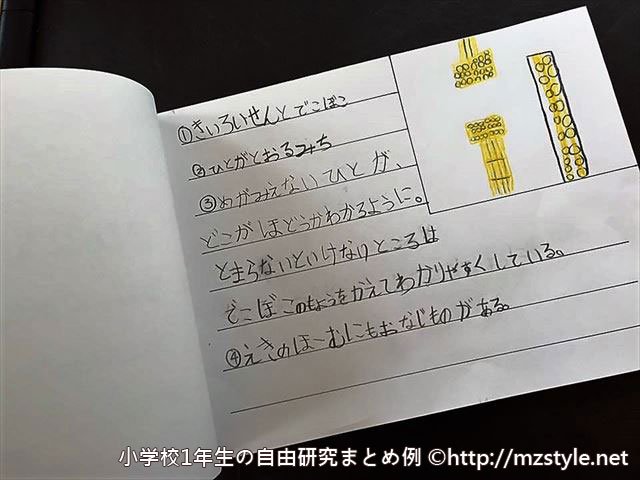 ①きいろいせんとでこぼこ
②ひとがとおるみち
③めがみえないひとが、
どこがほどうかわかるように。
とまらないといけないところは
でこぼこのもようをかえてわかりやすくしている。
④えきのほーむにもおなじものがある。
小学校1年生の自由研究まとめ例 ©http://mzstyle.net